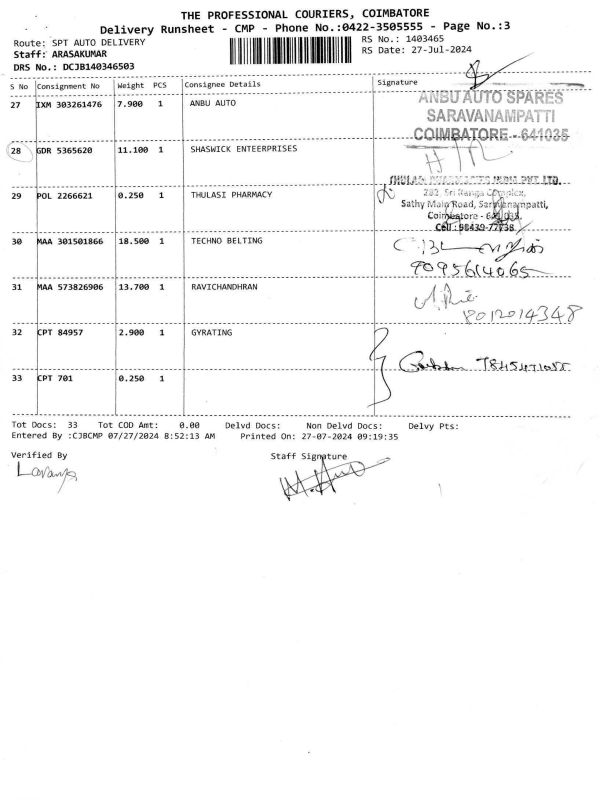 THE PROFESSIONAL COURIERS, COIMBATORE
Delivery Runsheet - CMP - Phone No.:0422-3505555 - Page No.:3
Route: SPT AUTO DELIVERY
RS No.: 1403465
Staff: ARASAKUMAR
RS Date: 27-Jul-2024
DRS No.: DCJB140346503
S No Consignment No Weight PCS Consignee Details Signature
27 IXM 303261476 7.900 1 ANBU AUTO
ANBU AUTO SPARES
SARAVANAMPATTI
COIMBATORE - 641035
28 GDR 5365620 11.100 1 SHASWICK ENTEERPRISES
29 POL 2266621 0.250 1 THULASI PHARMACY
THULASI PHARMACIES INDIA PVT. LTD.
282, Sri Ranga Complex,
Sathy Main Road, Saravanampatti,
Coimbatore - 641 035.
Cell : 98439-77738
30 MAA 301501866 18.500 1 TECHNO BELTING
9095614065
31 MAA 573826906 13.700 1 RAVICHANDHRAN
8012014348
32 CPT 84957 2.900 1 GYRATING
33 CPT 701 0.250 1
Tot Docs: 33 Tot COD Amt: 0.00 Delvd Docs: Non Delvd Docs: Delvy Pts:
Entered By :CJBCMP 07/27/2024 8:52:13 AM Printed On: 27-07-2024 09:19:35
Verified By Staff Signature
Lavanya